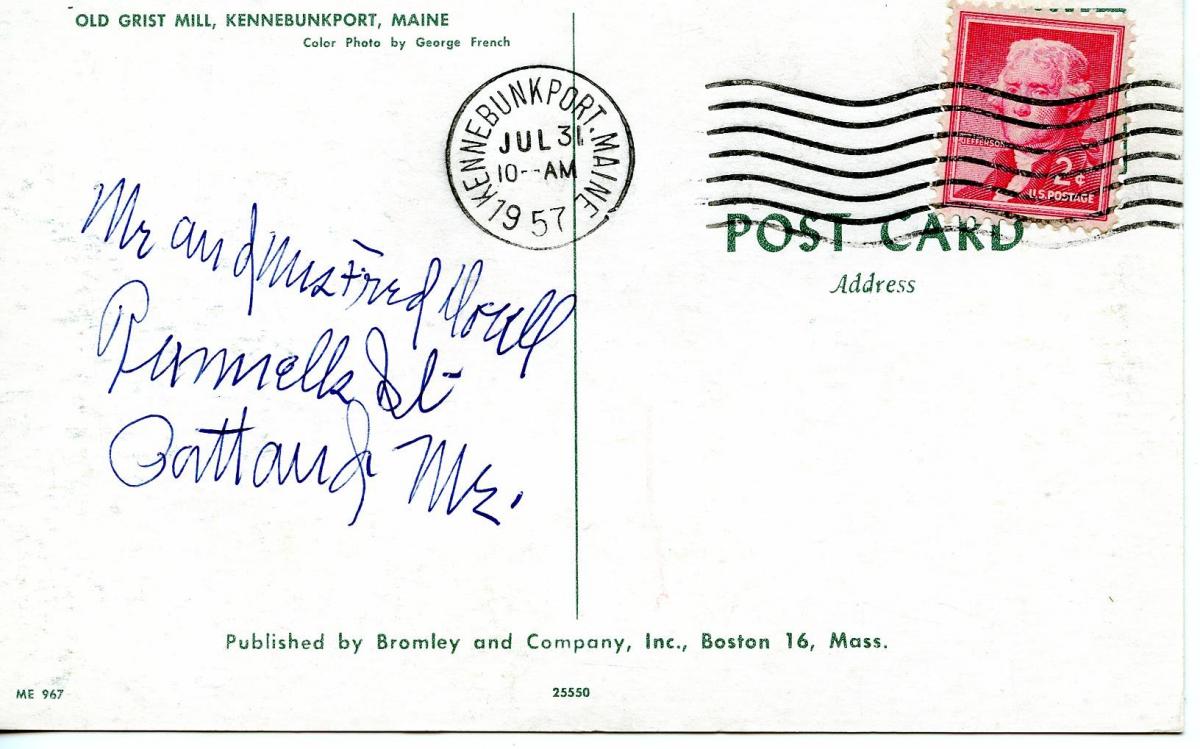 OLD GRIST MILL, KENNEBUNKPORT, MAINE
Color Photo by George French
KENNEBUNKPORT, MAINE
JUL 31
10--AM
1957
JEFFERSON
2¢
U.S. POSTAGE
POST CARD
Address
Mr and Mrs Fred
St
Me.
Published by Bromley and Company, Inc., Boston 16, Mass.
ME 967
25550